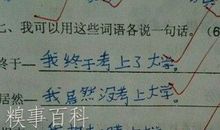 、我可以用这些词语各说一句话。(6
终于—我终于考上了大学。
居然 我居然没考上大学。
糗事百科